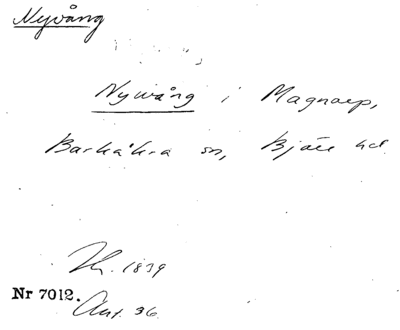 Nyvång
Nywång i Magnarp,
Barkåkra sn, Bjäre hd.
Th. 1839
Nr 7012.
Ant. 36